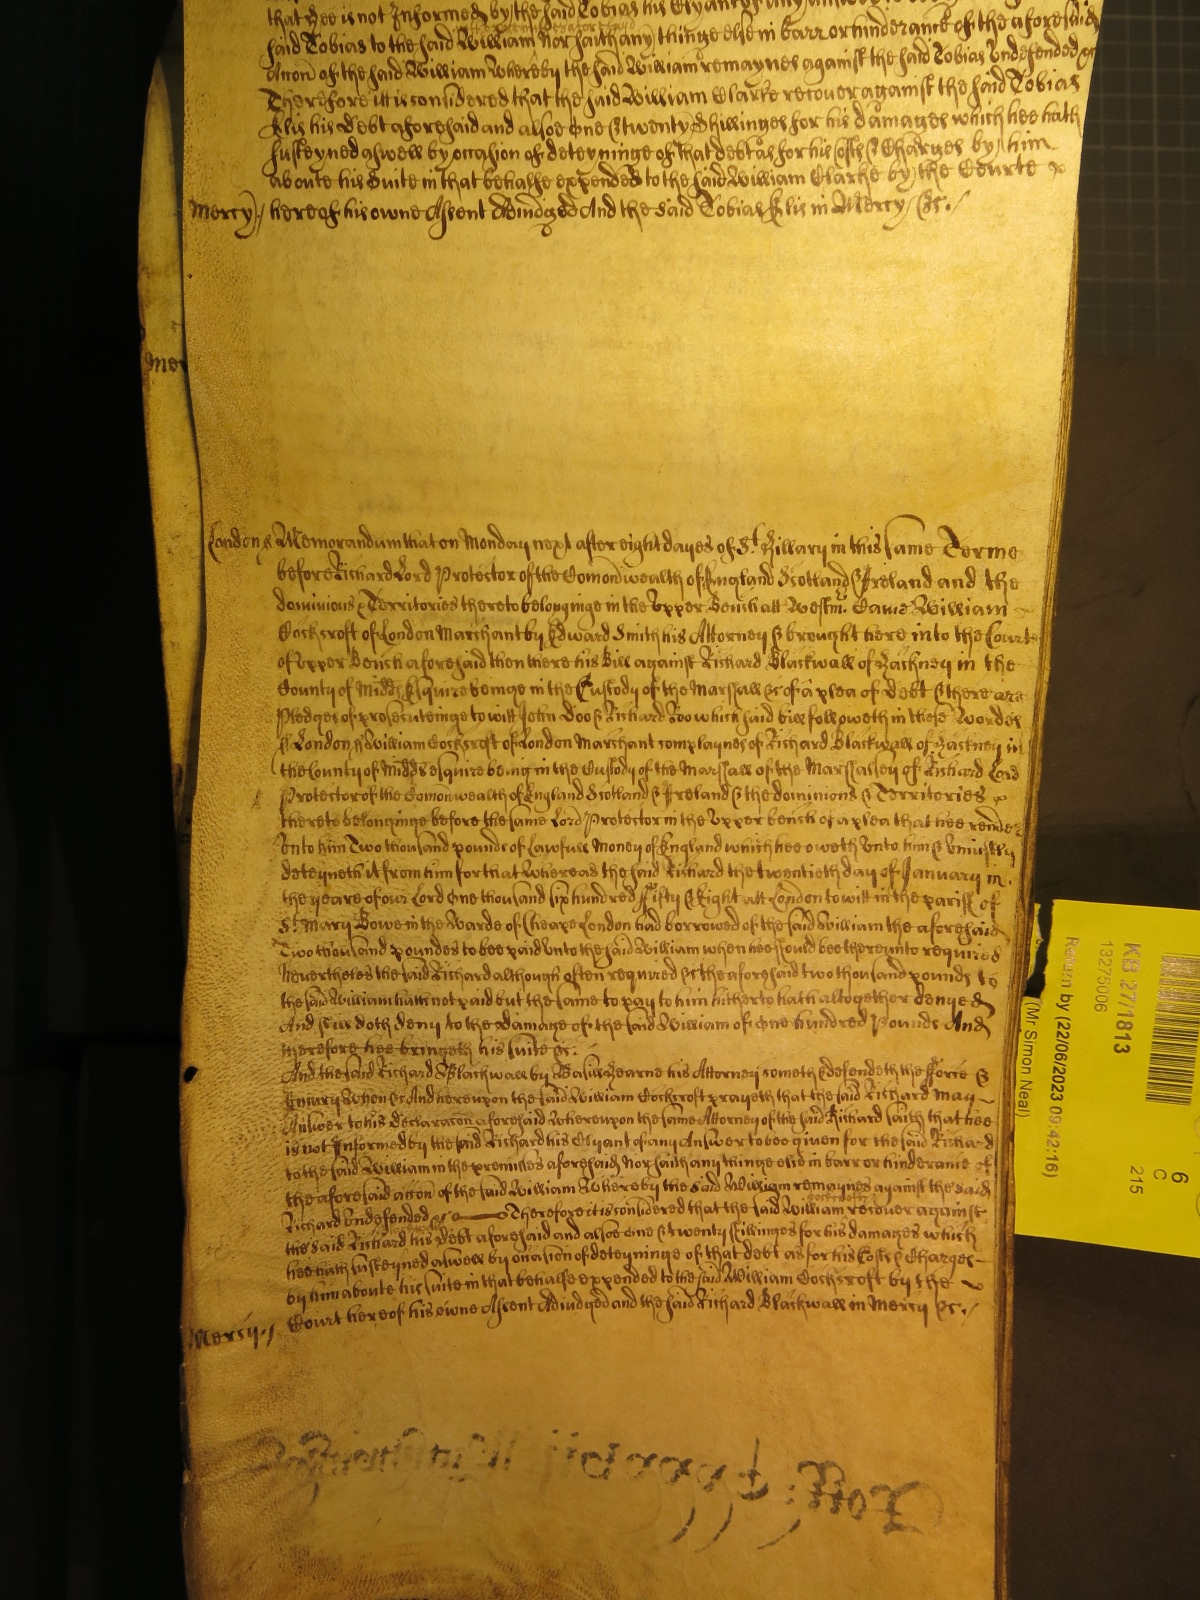 that hee is not Informed by the said Tobias his Clyant of any answere
said Tobias to the said William Nor saith any thinge else in barr or hinderance of the aforesaid
accon of the said William Whereby the said William remaynes against the said Tobias Undefended &c
Therefore itt is considered that the said William Clarke recover against the said Tobias
Elis his Debt aforesaid and alsoe One & twenty Shillinges for his damages which hee hath
susteyned aswell by occasion of deteyninge of that debt as for his Costs & Charges by him
aboute his Suite in that behalfe expended to the said William Clarke by the Courte
Mercy hereof his owne Assent Adiudged And the said Tobias Elis in Mercy &c.
Mer
London ss Memorandum that on Monday next after eight dayes of St Hillary in this same Terme
before Richard Lord Protector of the Comonwealth of England Scotland & Ireland and the
dominions & Territories thereto belonginge in the Upper Bench att Westm. Came William
Cockcroft of London Marchant by Edward Smith his Attorney & brought here into the Court
of Upper Bench aforesaid then there his Bill against Richard Blackwall of Hackney in the
County of Midds Esquire beinge in the Custody of the Marshall &c of a plea of Debt & there are
Pledges of prosecuteinge to witt John Doo & Richard Roo which said bill followeth in these Wordes
ss London ss William Cockcroft of London Marchant complaynes of Richard Blackwall of Hackney in
the County of Midds esquire being in the Custody of the Marshall of the Marshalsey of Richard Lord
Protector of the Comonwealth of England Scotland & Ireland & the dominions & Territories
thereto belonginge before the same Lord Protector in the Upper bench of a plea that hee render
Unto him Two thousand pounds of Lawfull Money of England which hee oweth Unto him & Uniustly
deteyneth it from him for that Whereas the said Richard the twentieth day of January in
the yeare of our Lord One thousand six hundred Fifty & Eight att London to witt in the parish of
St Mary Bowe in the Warde of Cheape London had borrowed of the said William the aforesaid
Two thousand poundes to bee paid Unto the said William when hee should bee thereunto required
Neverthelesse the said Richard although often required &c the aforesaid two thousand pounds to
the said William hath not paid but the same to pay to him hitherto hath altogether denyed
And still doth deny to the damage of the said William of One hundred Pounds And
therefore hee bringeth his suite &c.
And the said Richard Blackwall by Basill Hearne his Attorney cometh & defendeth the Force &
Iniury When &c And hereupon the said William Cockcroft prayeth that the said Richard may
Answer to his declaracon aforesaid Whereupon the same Attorney of the said Richard saith that hee
is not Informed by the said Richard his Clyant of any Answer to bee given for the said Richard
to the said William in the premisses aforesaid Nor saith any thinge else in barr or hinderance of
the aforesaid accon of the said William Whereby the said William remaynes against the said
Richard Undefended &c Therefore it is considered that the said William Cockcroft recover against
the said Richard his Debt aforesaid and alsoe One & twenty shillinges for his damages which
hee hath susteyned aswell by occasion of deteyninge of that debt as for his Costs & Charges
by him about his suite in that behalfe expended to the said William Cockcroft by the
Mercy Court hereof his owne Assent Adiudged and the said Richard Blackwall in Mercy &c.
KB 27/1813
13275006
Return by (22/06/2023 09:42:16)
(Mr Simon Neal)
6
C
215